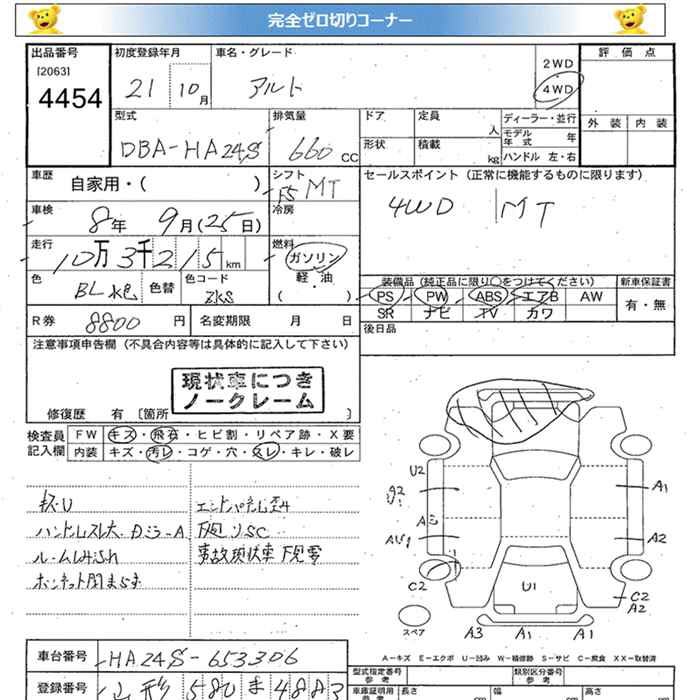 完全ゼロ切りコーナー
出品番号 初度登録年月 車名・グレード 評価点
[2063] 2WD
4454 21 10月 アルト 4WD
型式 排気量 ドア 定員 人 ディーラー・並行 外装 内装
モデル年式 年
DBA-HA24S 660cc 形状 積載 kg ハンドル 左・右
車歴 自家用・( ) シフト F5 MT セールスポイント(正常に機能するものに限ります)
車検 8年 9月(25日) 冷房 4WD MT
走行 10万3千215km 燃料 ガソリン
軽・油
( )
色 BL 水色 色替 色コード ZKS 装備品(純正品に限り○をつけてください) 新車保証書
PS PW ABS エアB AW 有・無
SR ナビ TV カワ
R券 8800円 名変期限 月 日 後日品
注意事項申告欄(不具合内容等は具体的に記入して下さい)
現状車につき
ノークレーム
修復歴 有 [箇所 ]
検査員記入欄 FW キズ・飛石・ヒビ割・リペア跡・X要
内装 キズ・汚レ・コゲ・穴・スレ・キレ・破レ
キズ・U
ハンドルスレ大
下廻りSC
事故現状車
U2
A2
A1
A2
C2
U1
C2
A2
スペア A3 A1 A1
A-キズ E-エクボ U-凹み W-補修跡 S-サビ C-腐食 XX-取替済
車台番号 HA24S-653306
型式指定番号 類別区分番号
参考 参考
登録番号 山形 580 ま 4883
車庫証明用 長さ cm 幅 cm 高さ cm